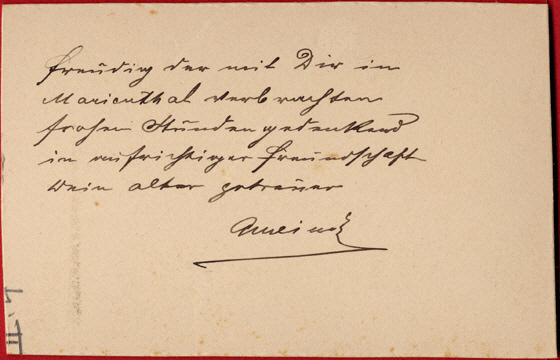 freudig der mit Dir in
Marienthal verbrachten
frohen Stunden gedenkend
in aufrichtiger Freundschaft
Dein alter getreuer